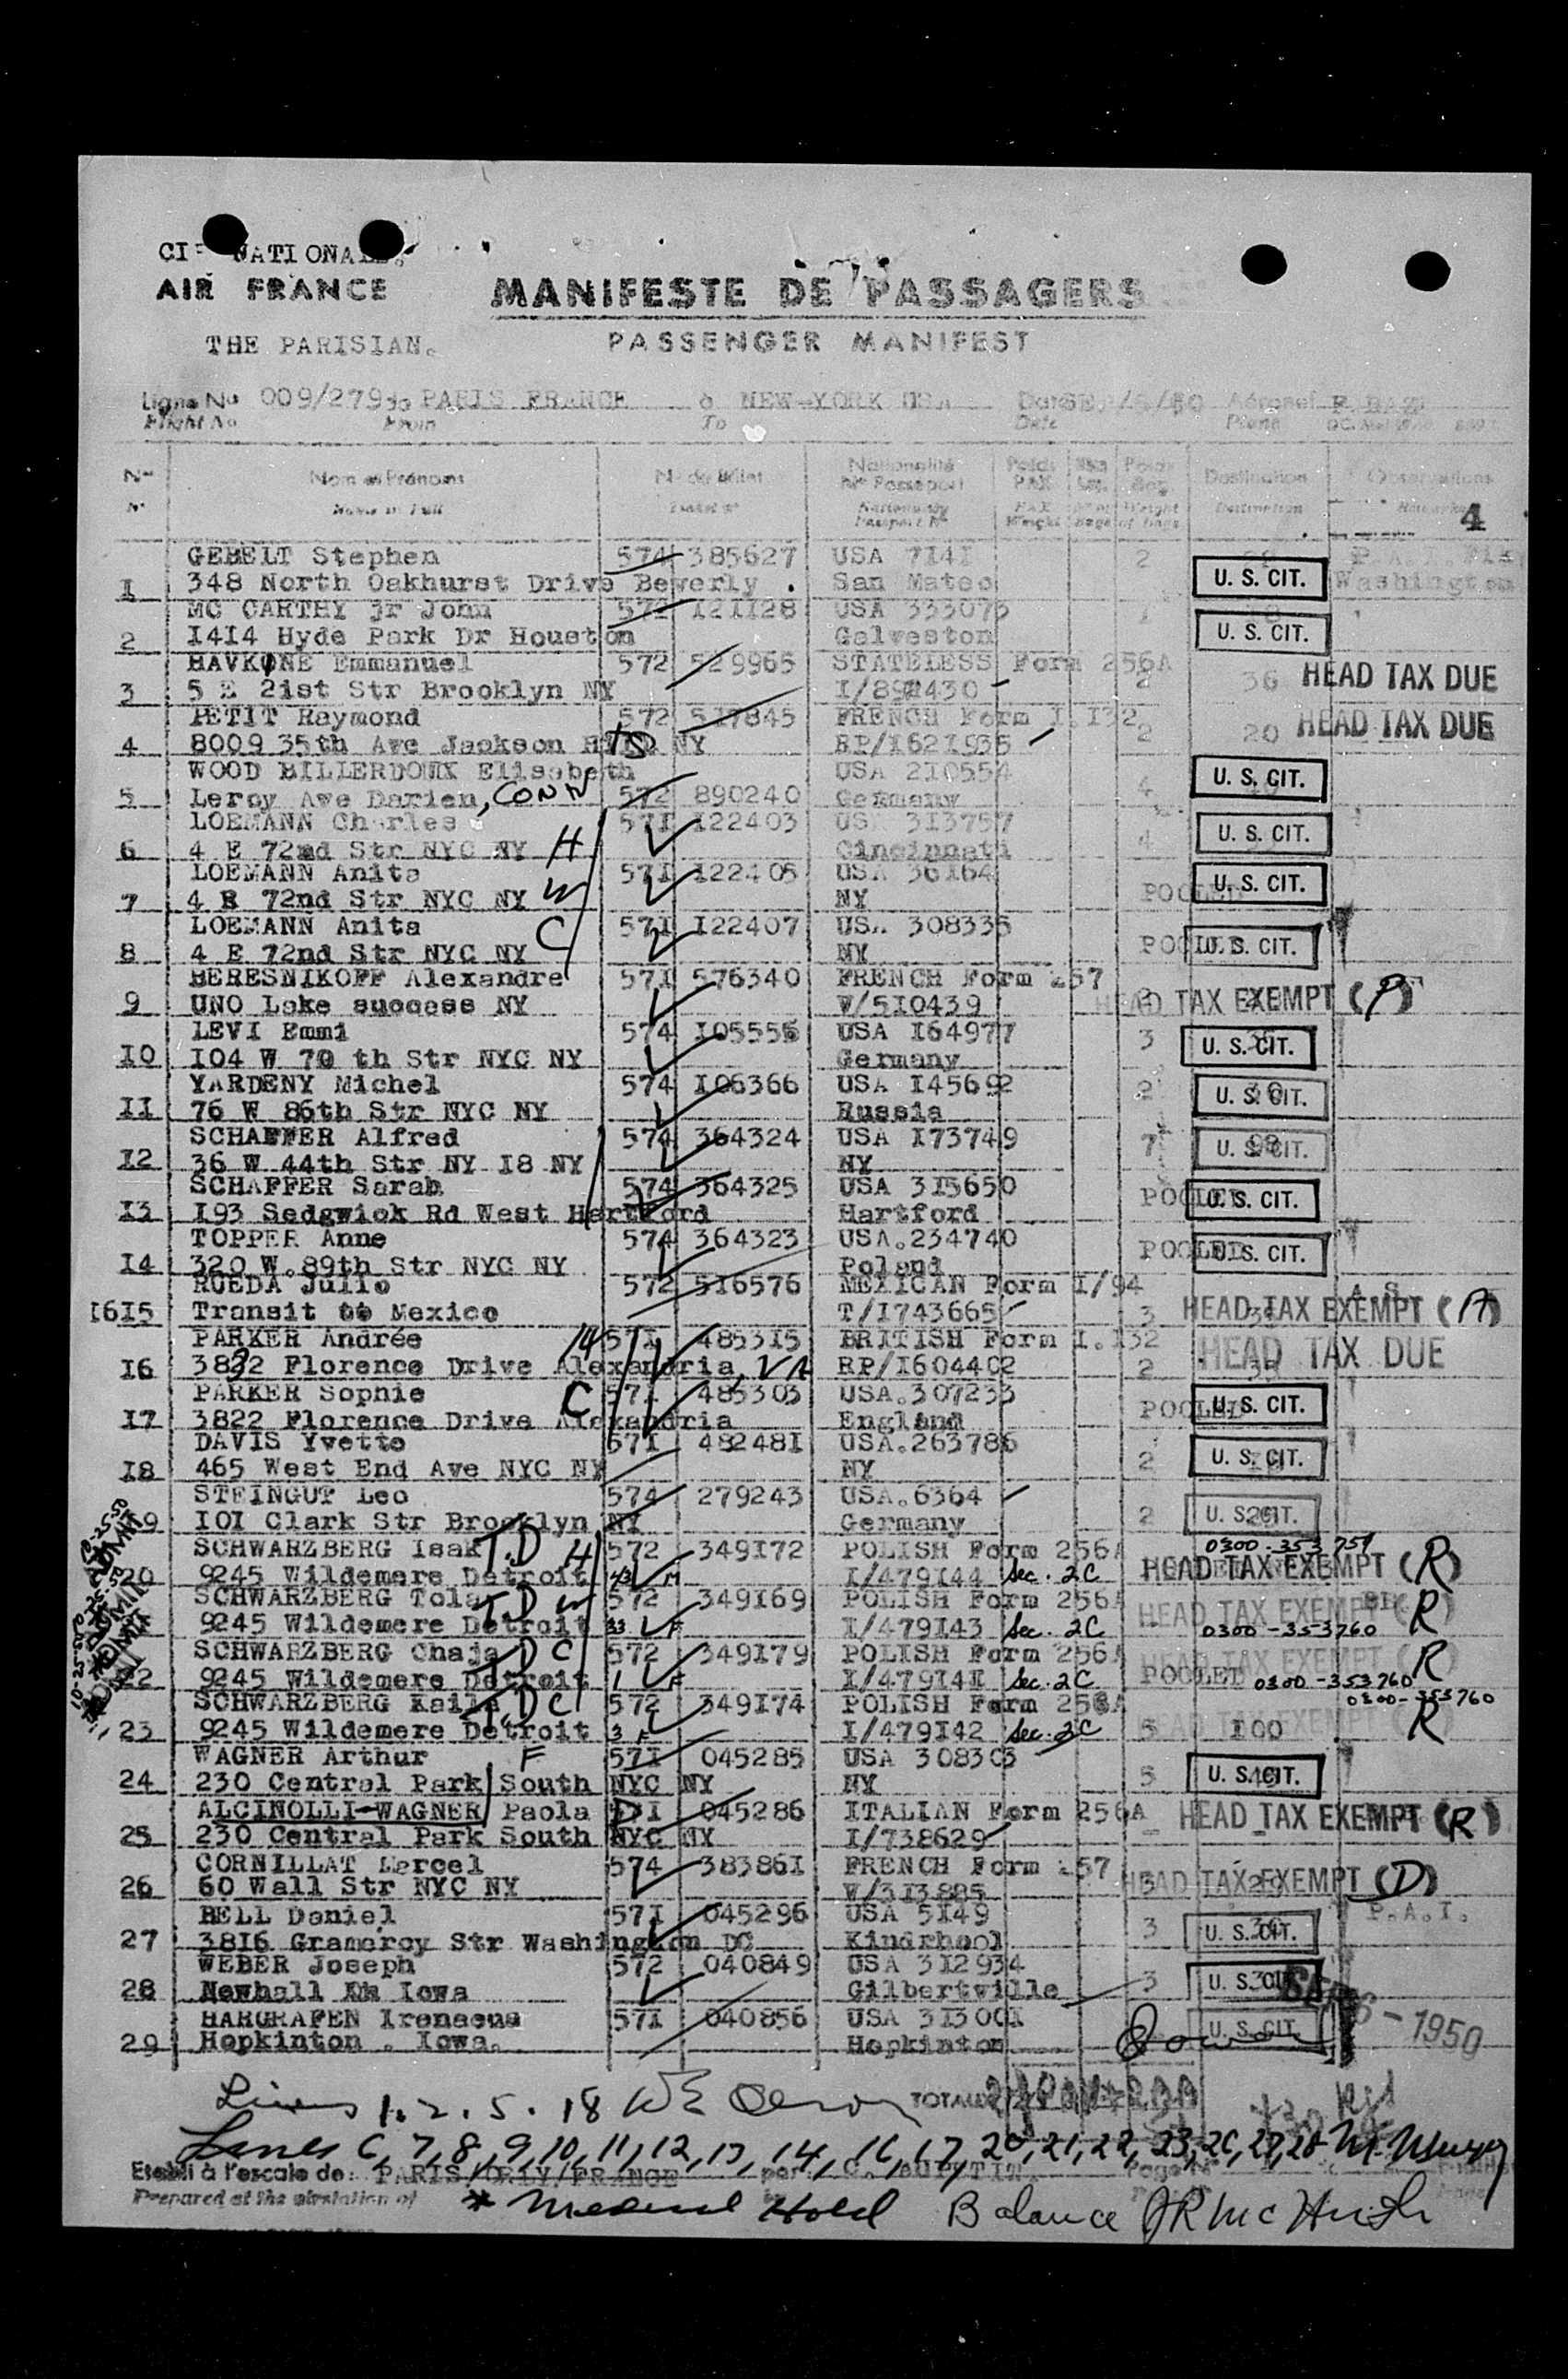 CIE NATIONALE
AIR FRANCE
MANIFESTE DE PASSAGERS
THE PARISIAN.
PASSENGER MANIFEST
Ligne No 009/279 de PARIS FRANCE à NEW-YORK USA Date Aéronef
Flight No From To Date Plane
No Nom et Prénoms No du Billet Nationalité No Passeport Poids PAX Poids Bag. Destination Observations
N° Name in Full Ticket N° Nationality Passport N° PAX Weight Weight of bags Destination Remarks 4
GEBELT Stephen 574 385627 USA 7141 2
1 348 North Oakhurst Drive Bewerly . San Mateo U. S. CIT. Washington
MC CARTHY jr John 572 121128 USA 333073
2 1414 Hyde Park Dr Houston Galveston U. S. CIT.
HAVKONE Emmanuel 572 529965 STATELESS Form 256A
3 5 E 21st Str Brooklyn NY 2 36 HEAD TAX DUE
PETIT Raymond 572 517845 FRENCH Form I.132
4 8009 35th Ave Jackson HTS NY RP/1621935 2 20 HEAD TAX DUE
WOOD BILLERDOUX Elisabeth USA 210554
5 Leroy Ave Darien, CONN 572 890240 Germany 4 U. S. CIT.
LOEMANN Charles 571 122403 USA 313757
6 4 E 72nd Str NYC NY H Cincinnati 4 U. S. CIT.
LOEMANN Anita 571 122405 USA 36164
7 4 E 72nd Str NYC NY W NY POOLED U. S. CIT.
LOEMANN Anita 571 122407 USA 308335
8 4 E 72nd Str NYC NY C NY POOLED U. S. CIT.
BERESNIKOFF Alexandre 571 576340 FRENCH Form 257
9 UNO Lake success NY V/510439 HEAD TAX EXEMPT (P)
LEVI Emmi 574 105555 USA 164977
10 104 W 70 th Str NYC NY Germany 3 U. S. CIT.
YARDENY Michel 574 106366 USA 145692
11 76 W 86th Str NYC NY Russia 2 U. S. CIT.
SCHAEFER Alfred 574 364324 USA 173749
12 36 W 44th Str NY 18 NY NY 7 U. S. CIT.
SCHAFFER Sarah 574 364325 USA 315650
13 193 Sedgwick Rd West Hertford Hartford POOLED U. S. CIT.
TOPPER Anne 574 364323 USA.234740
14 320 W.89th Str NYC NY Poland POOLED U. S. CIT.
RUEDA Julio 572 516576 MEXICAN Form I/94
1615 Transit to Mexico T/1743665 3 HEAD TAX EXEMPT (A)
PARKER Andrée 571 485315 BRITISH Form I.132
16 3822 Florence Drive Alexandria, VA RP/1604402 2 HEAD TAX DUE
PARKER Sophie C 571 485303 USA.307233
17 3822 Florence Drive Alexandria England POOLED U. S. CIT.
DAVIS Yvette 571 482481 USA.263786
18 465 West End Ave NYC NY NY 2 U. S. CIT.
STEINGUT Leo 574 279243 USA.6364
19 101 Clark Str Brooklyn NY Germany 2 U. S. CIT.
SCHWARZBERG Isak T.D H 572 349172 POLISH Form 256A 0300-353759
20 9245 Wildemere Detroit 43 M I/479144 Sec. 2C HEAD TAX EXEMPT (R)
SCHWARZBERG Tola T.D W 572 349169 POLISH Form 256A HEAD TAX EXEMPT R
9245 Wildemere Detroit 33 F I/479143 Sec. 2C 0300-353760
SCHWARZBERG Chaja T.D C 572 349179 POLISH Form 256A HEAD TAX EXEMPT R
22 9245 Wildemere Detroit 1 F I/479141 Sec. 2C POOLED 0300-353760
SCHWARZBERG Kaila T.D C 572 349174 POLISH Form 256A 0300-353760
23 9245 Wildemere Detroit 3 F I/479142 Sec. 2C 5 100 HEAD TAX EXEMPT R
WAGNER Arthur F 571 045285 USA 308303
24 230 Central Park South NYC NY NY 5 U. S. CIT.
ALCINOLLI-WAGNER Paola 571 045286 ITALIAN Form 256A
25 230 Central Park South NYC NY I/738629 HEAD TAX EXEMPT (R)
CORNILLAT Marcel 574 383861 FRENCH Form 257
26 60 Wall Str NYC NY V/313885 HEAD TAX EXEMPT (D)
BELL Daniel 571 045296 USA 5149 P.A.I.
27 3816 Gramercy Str Washington DC Kindrhool 3 U. S. CIT.
WEBER Joseph 572 040849 USA 312934
28 Newhall Iowa Gilbertville 3 U. S. CIT.
HARGRAFEN Irenaeus 571 040856 USA 313001
29 Hopkinton . Iowa. Hopkinton U. S. CIT. SEP 6 - 1950
Lines 1. 2. 5. 18 TOTAUX
Lines 6, 7, 8, 9, 10, 11, 12, 13, 14, 16, 17, 20, 21, 22, 23, 26, 27, 28
Etabli à l'escale de: PARIS/ORLY/FRANCE par
Prepared at the airstation of
* Medical Hold Balance JR Mc Hugh